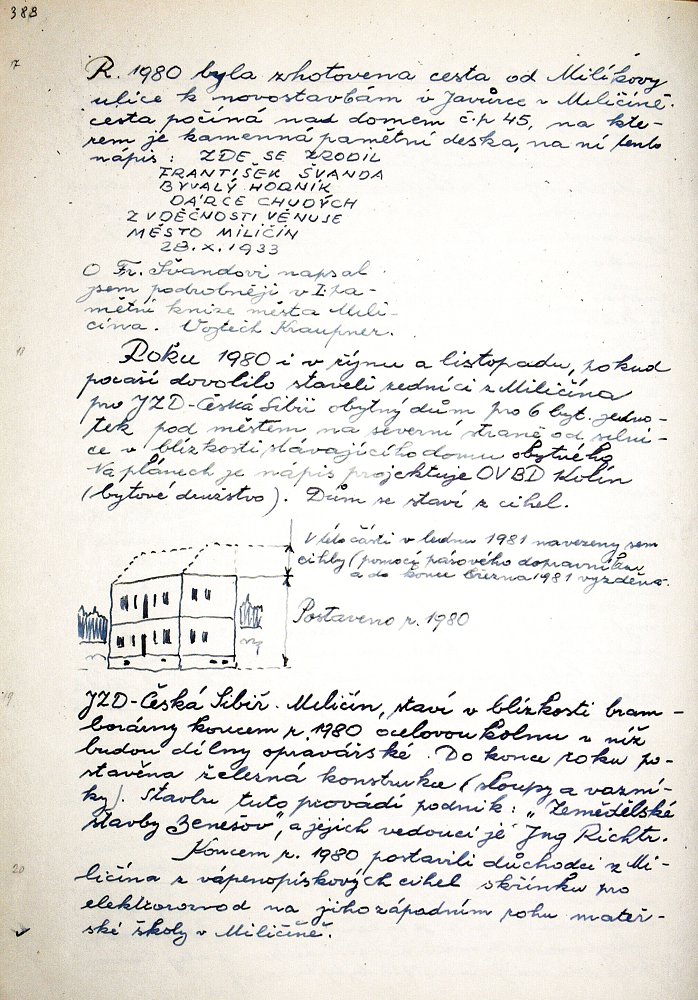 388
17
R. 1980 byla zhotovena cesta od Milíkovy
ulice k novostavbám i Javůrce v Miličíně.
cesta počíná nad domem č.p 45, na kte-
rem je kamenná pamětní deska, na ní tento
nápis: ZDE SE ZRODIL
FRANTIŠEK ŠVANDA
BÝVALÝ HORNÍK
DÁRCE CHUDÝCH
Z VDĚČNOSTI VĚNUJE
MĚSTO MILIČÍN
28.X.1933
O Fr. Švandovi napsal
jsem podrobněji v I. pa-
mětní knize města Mili-
čína. Vojtěch Kraupner.
18
Roku 1980 i v říjnu a listopadu, pokud
počasí dovolilo staveli zedníci z Miličína
pro JZD-Česká Sibiř obytný dům pro 6 byt. jedno-
tek pod městem na severní straně od silni-
ce v blízkosti stávajícího domu obytného
Na plánech je nápis projektuje OVBD Kolín
(bytové družstvo). Dům se staví z cihel.
V této části v lednu 1981 navezeny sem
cihly (pomocí pásového dopravníku
a do konce března 1981 vyzděna.
Postaveno r. 1980
19
JZD-Česká Sibiř. Miličín, staví v blízkosti bram-
borárny koncem r. 1980 ocelovou kolnu v níž
budou dílny opravářské. Do konce roku po-
stavěna železná konstrukce (sloupy a vazní-
ky). Stavbu tuto provádí podnik: "Zemědělské
stavby Benešov", a jejich vedoucí je Ing Richtr.
20
Koncem r. 1980 postavili důchodci z Mi-
ličína z vápenopískových cihel skřínku pro
elektrorozvod na jihozápadním rohu mateř-
ské školy v Miličíně.